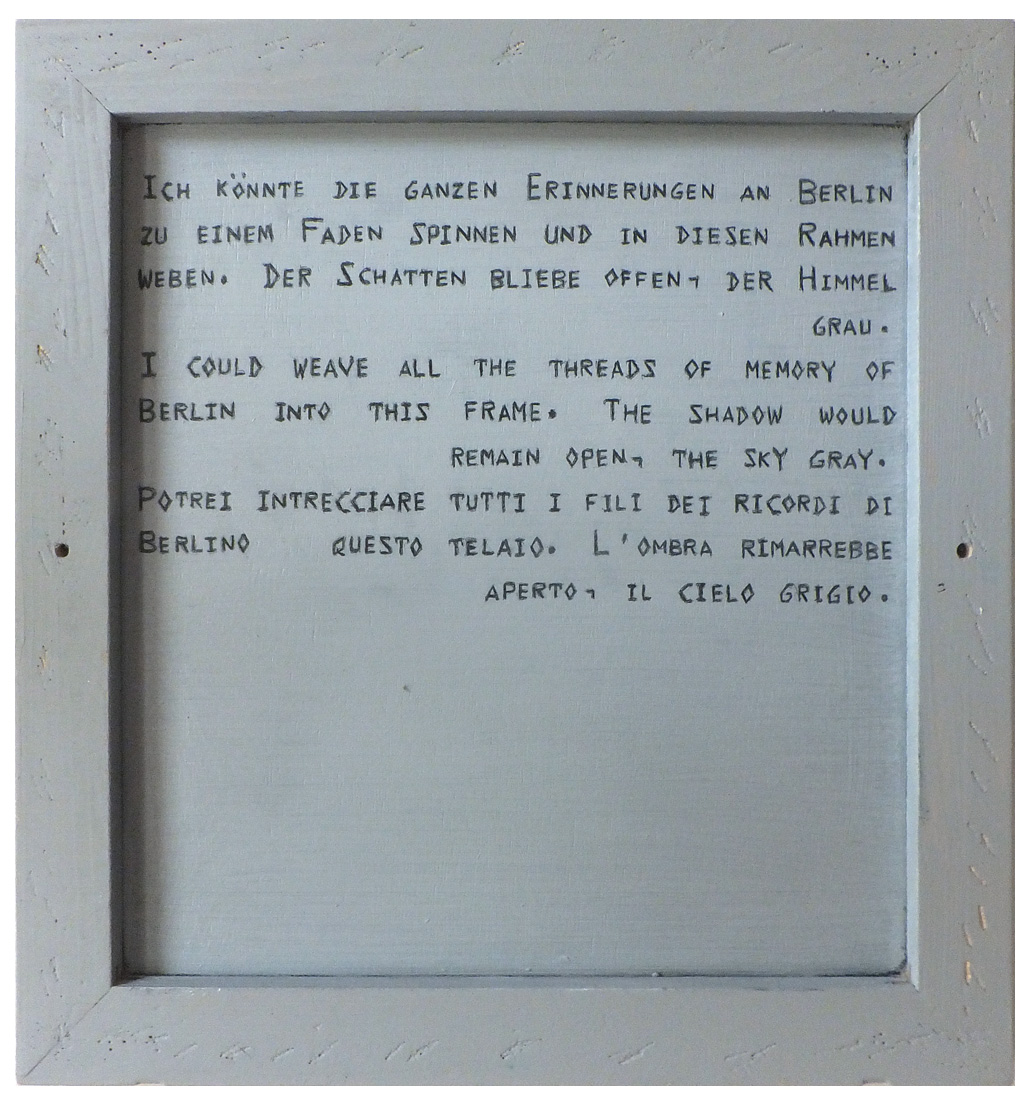 ICH KÖNNTE DIE GANZEN ERINNERUNGEN AN BERLIN
ZU EINEM FADEN SPINNEN UND IN DIESEN RAHMEN
WEBEN. DER SCHATTEN BLIEBE OFFEN, DER HIMMEL
GRAU.
I COULD WEAVE ALL THE THREADS OF MEMORY OF
BERLIN INTO THIS FRAME. THE SHADOW WOULD
REMAIN OPEN, THE SKY GRAY.
POTREI INTRECCIARE TUTTI I FILI DEI RICORDI DI
BERLINO QUESTO TELAIO. L'OMBRA RIMARREBBE
APERTO, IL CIELO GRIGIO.